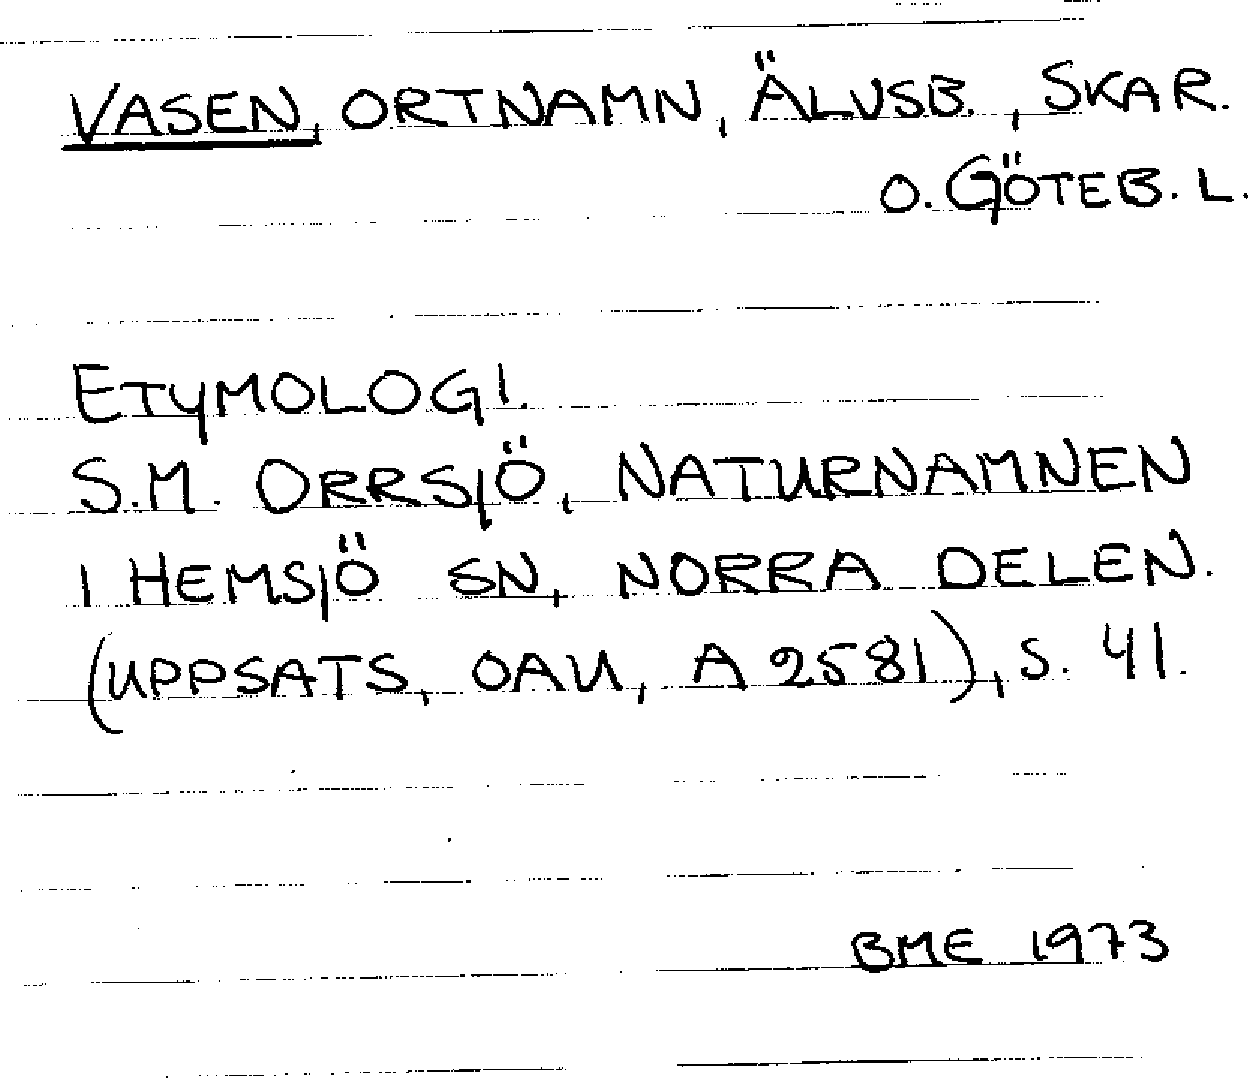 VASEN, ORTNAMN, ÄLVSB., SKAR.
O. GÖTEB. L.
ETYMOLOGI.
S.M. ORRSJÖ, NATURNAMNEN
I HEMSJÖ SN, NORRA DELEN.
(UPPSATS, OAU, A 2581), S. 41.
BME 1973